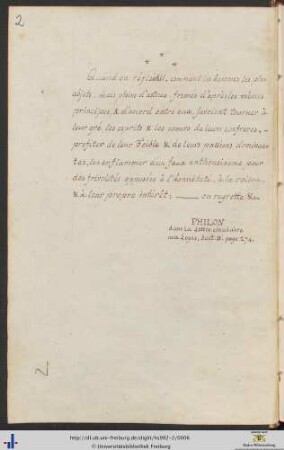 2
* * *
Quand on réfléchit, comment les hommes les plus
abjets, mais pleins d'astuce, formés d'après les mêmes
principes, & d'accord entre eux, savoient tourner à
leur gré, les esprits & les cœurs de leurs confreres,
profiter de leur foible & de leurs passions dominan-
tes, les enflammer d'un faux enthousiasme pour
des frivolités opposées à l'honnêteté, à la raison,
& à leur propre intérêt; — on regrette &c.
PHILON
dans la Lettre circulaire
aux Loges, page 174.
2
http://dl.ub.uni-freiburg.de/diglit/hs992-2/0006
© Universitätsbibliothek Freiburg
Baden-Württemberg